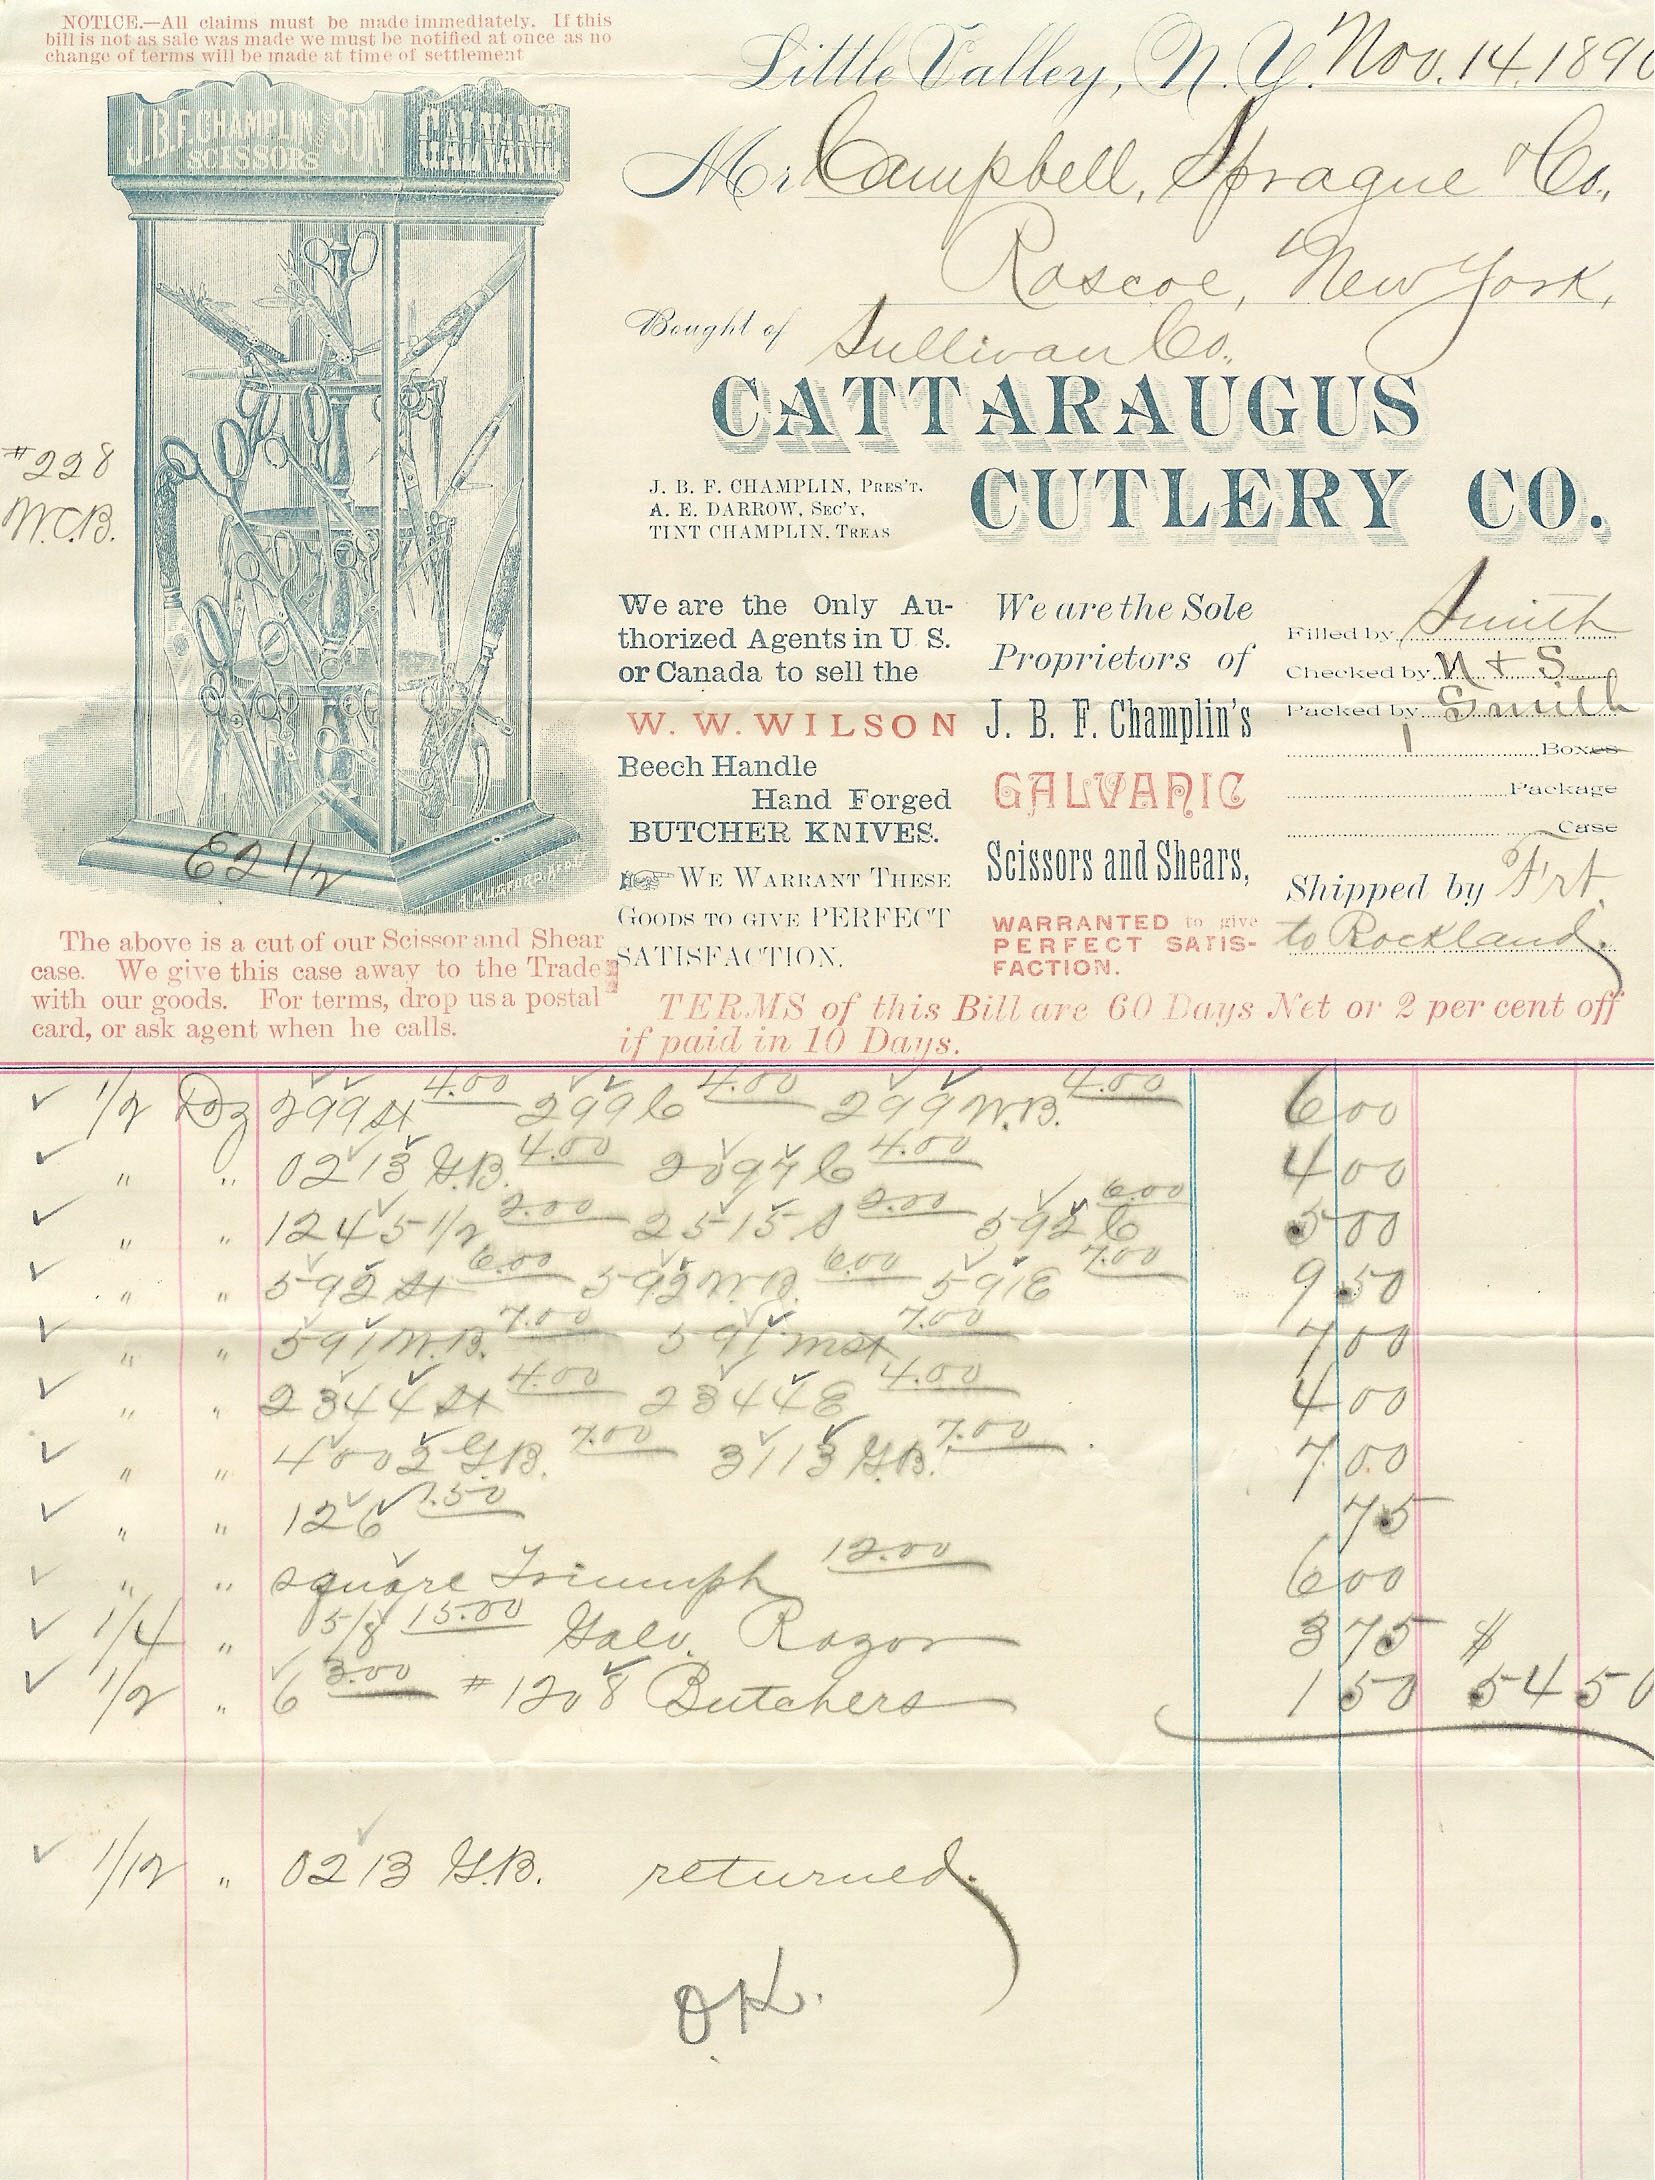 NOTICE.—All claims must be made immediately. If this
bill is not as sale was made we must be notified at once as no
change of terms will be made at time of settlement
Little Valley, N. Y. Nov. 14, 1890
J.B.F. CHAMPLIN SON
SCISSORS
GALVANIC
Mr Campbell, Sprague & Co.,
Roscoe, New York,
Bought of Sullivan Co.
CATTARAUGUS
CUTLERY CO.
J. B. F. CHAMPLIN, PRES'T,
A. E. DARROW, SEC'Y,
TINT CHAMPLIN, TREAS
#228
W.C.B.
E2 1/2
The above is a cut of our Scissor and Shear
case. We give this case away to the Trade
with our goods. For terms, drop us a postal
card, or ask agent when he calls.
We are the Only Au-
thorized Agents in U. S.
or Canada to sell the
W. W. WILSON
Beech Handle
Hand Forged
BUTCHER KNIVES.
WE WARRANT THESE
GOODS TO GIVE PERFECT
SATISFACTION.
We are the Sole
Proprietors of
J. B. F. Champlin's
GALVANIC
Scissors and Shears,
WARRANTED to give
PERFECT SATIS-
FACTION.
Filled by Smith
Checked by N + S
Packed by Smith
1 Boxes
Package
Case
Shipped by Frt.
to Rockland.
TERMS of this Bill are 60 Days Net or 2 per cent off
if paid in 10 Days.
1/2 Doz 299 St 4.00 299 C 4.00 299 W.B. 4.00 6 00
" " 0213 G.B. 4.00 2097 C 4.00 4 00
" " 1245 1/2 2.00 2515 S 2.00 592 C 6.00 5 00
" " 592 St 6.00 592 W.B. 6.00 591 E 7.00 9 50
" " 591 W.B. 7.00 591 mst 7.00 7 00
" " 2344 St 4.00 2344 E 4.00 4 00
" " 4002 G.B. 7.00 3113 G.B. 7.00 7 00
" " 126 1.50 75
" " square Triumph 12.00 6 00
1/4 " 5/8 15.00 Galv. Razor 3 75 $
1/2 " 6 3.00 #1208 Butchers 1 50 54 50
1/12 " 0213 G.B. returned.
OK.